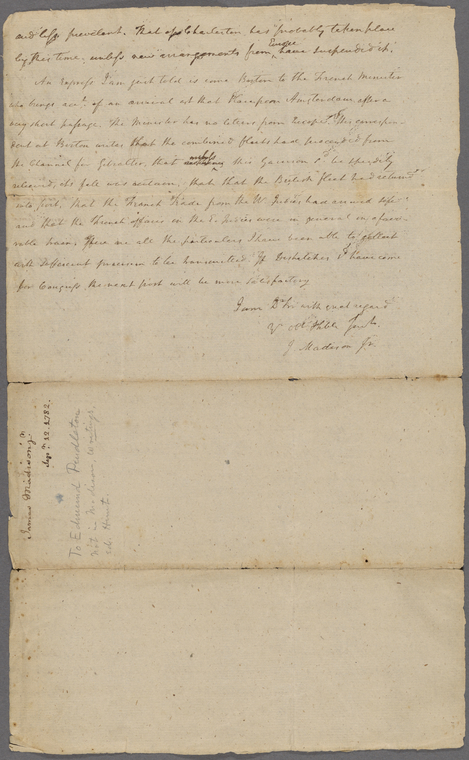 and less prevalent. That of Charleston has probably taken place
by this time, unless new arrangements from Europe have suspended it.
An express I am just told is come from Boston to the French Minister
who brings acct. of an arrival at that place from Amsterdam after a
very short passage. The Minister has no letters from Europe. His correspon
dent at Boston writes that the combined fleets have proceeded from
the Channel for Gibralter, that unless this Garrison sd. be speedily
relieved, its fall was certain, that the British fleet had returned
into port, that the French trade from the W. Indies has arrived safe
and that the French affairs in the E. Indies were in general in a favo
rable train. These are all the particulars I have been able to collect
with sufficient precision to be transmitted. If Despatches have come
for Congress the next post will be more satisfactory
I am Dr Sir with great regard
Yr Obt. & Hble Servt.
J. Madison Jr.
James Madison Jr.
Sepr. 1782.
To Edmund Pendleton
Not in Madison, Writings,
ed. Hunt.